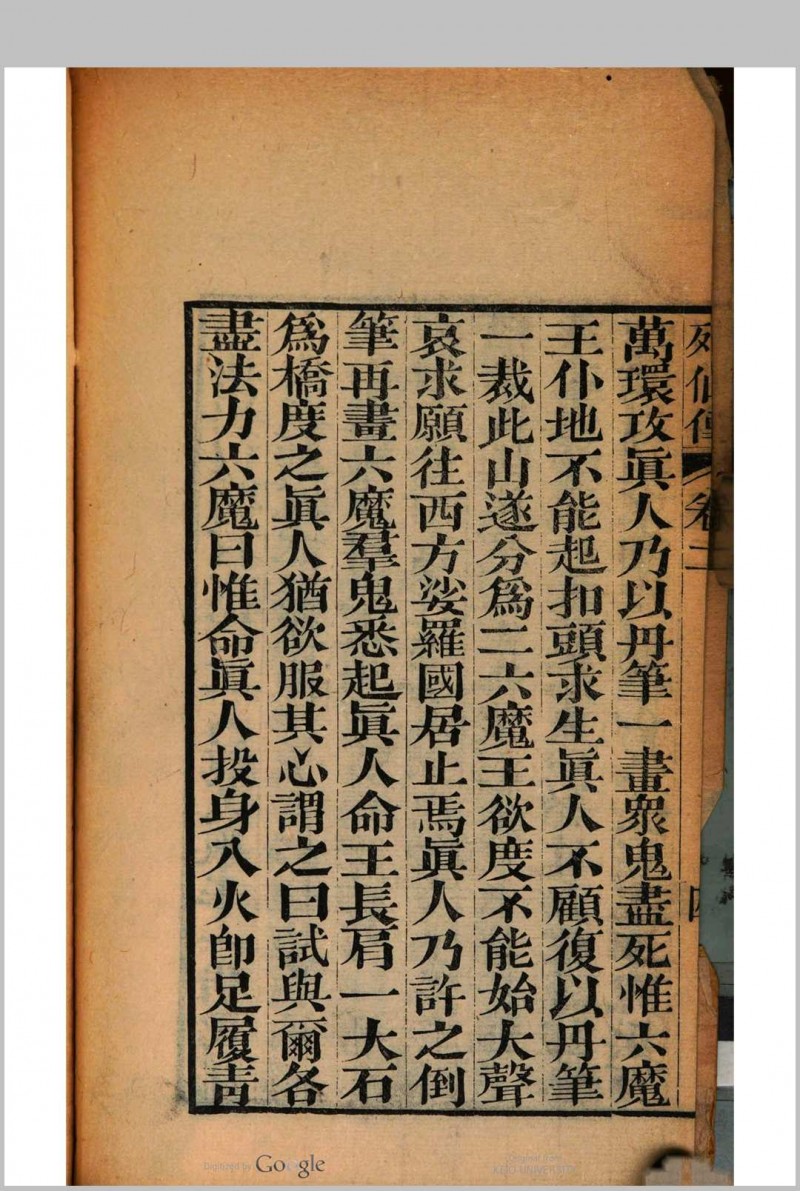 列仙傳 卷二 四
萬環攻眞人乃以丹筆一畫衆鬼盡死惟六魔
王仆地不能起扣頭求生眞人不顧復以丹筆
一裁此山遂分爲二六魔王欲度不能始大聲
哀求願往西方娑羅國居止焉眞人乃許之倒
筆再畫六魔羣鬼悉起眞人命王長肩一大石
爲橋度之眞人猶欲服其心謂之曰試與爾各
盡法力六魔曰惟命眞人投身入火卽足履靑
Digitized by Google
Original from
KEIO UNIVERSITY